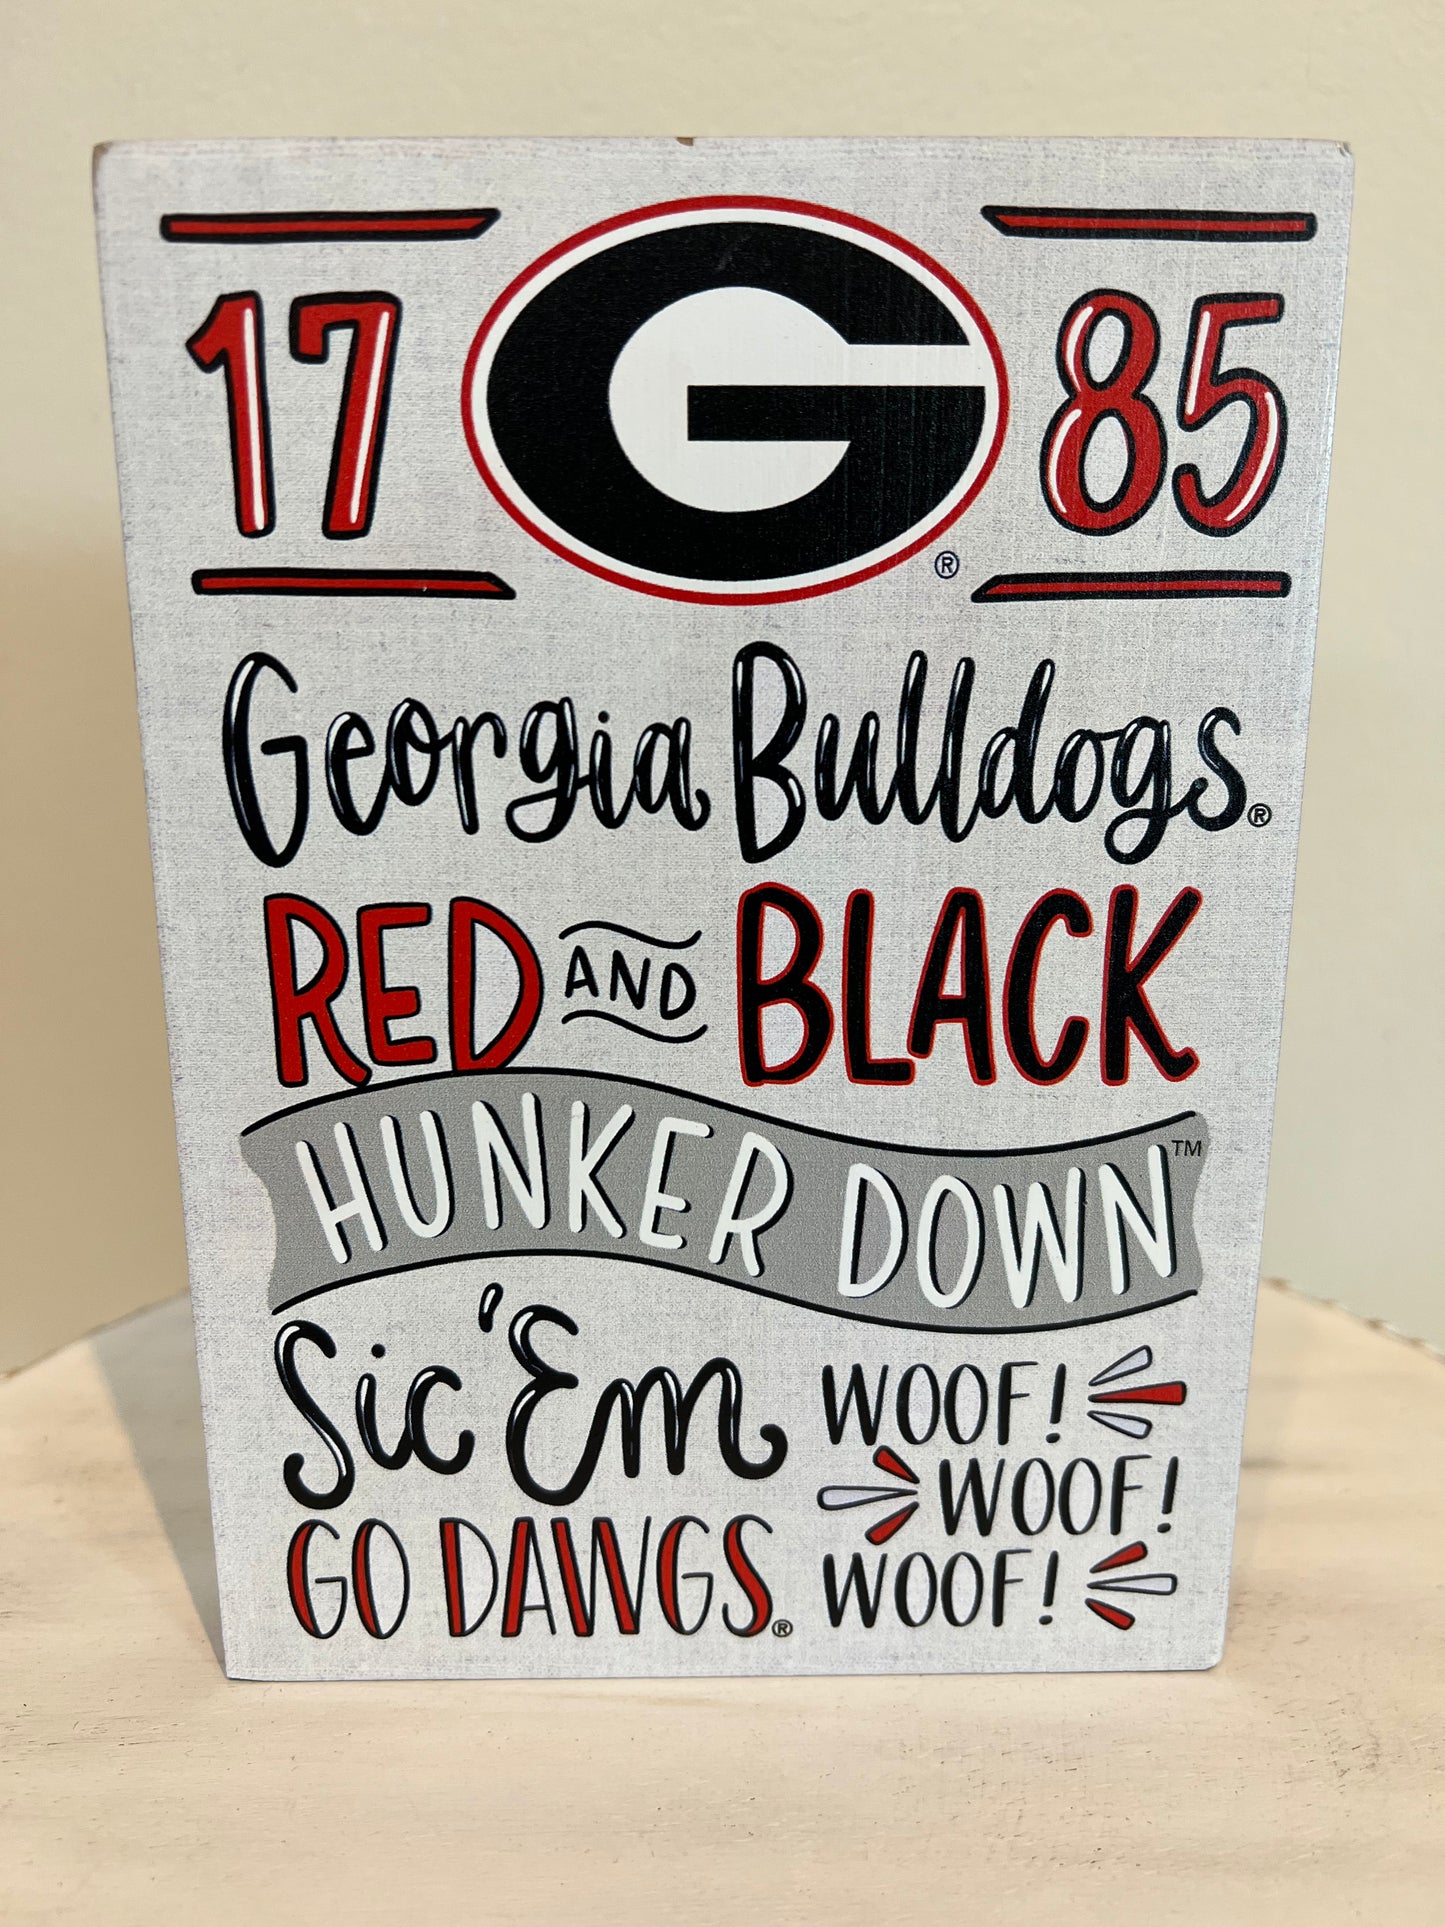 17 G 85
®
Georgia Bulldogs®
RED AND BLACK
HUNKER DOWN™
Sic 'Em
GO DAWGS®
WOOF!
WOOF!
WOOF!